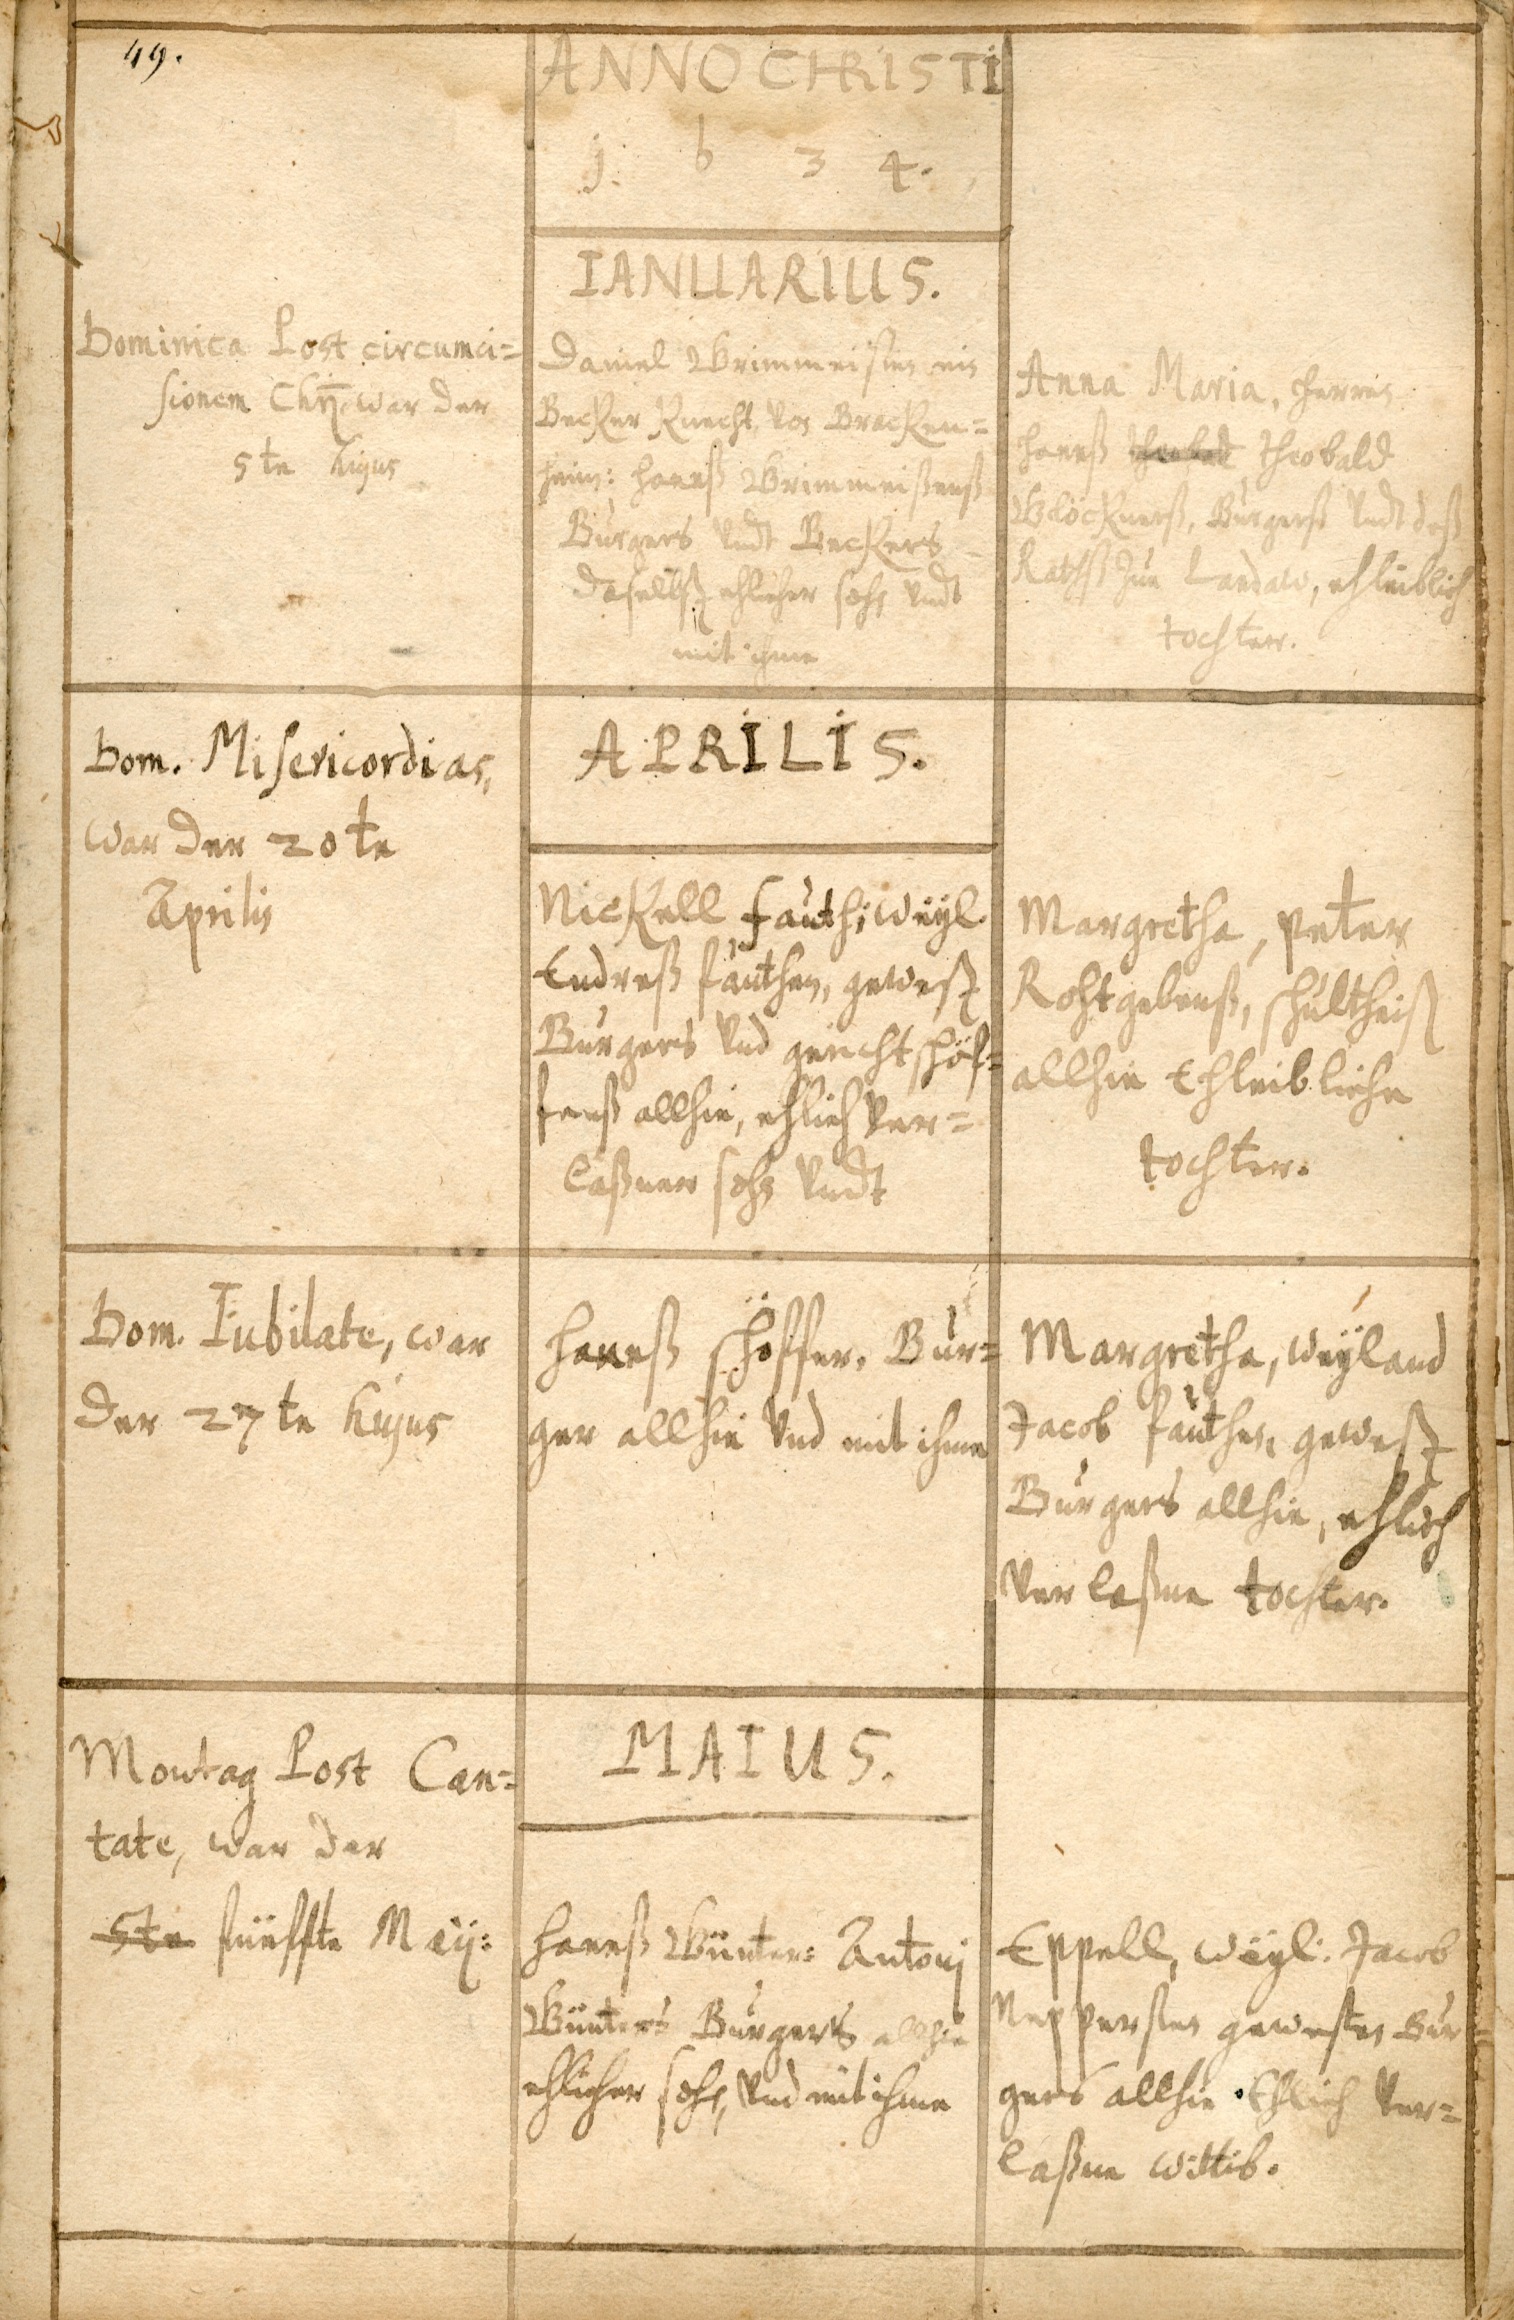 49.
ANNO CHRISTI
1. 6 3 4.
IANUARIUS.
Dominica Post circumci=
sionem Chr̄j. war der
5te hujus
Daniel
Becker Knecht, von Bracken=
heim: Hanß
Burgers Vndt Beckers
daselbst ehlicher sohn Vndt
mit ihme
Anna Maria, Herren
Hanß Theobald
Glöckners, Burgerß Vndt deß
Rathß Zue Landaw, ehleiblich
tochter.
Dom. Misericordias,
war der 20te
Aprilis
APRILIS.
Nickell Fauth, weyl.
Endreß Fauthen, gewest
Burgers Vnd gerichtschöf=
fenß allhie, ehlich Ver=
laßner sohn Vndt
Margretha, Peter
Rohtgebenß, schultheiß
allhie Ehleibliche
tochter.
Dom. Iubilate, war
der 27te hujus
Hanß schöffer, Bur=
ger allhie Vnd mit ihme
Margretha, weyland
Jacob Fauthen, gewest
Burgers allhie, ehlich
Verlaßne tochter.
Montag Post Can=
tate, war der
5te fünffte Maij:
MAIUS.
Hanß Günter: Antonj
Günters Burgers allhie
ehlicher sohn, Vnd mit ihme
Eppell, weyl. Jacob
gewesten Bur
gers allhie Ehlich Ver=
laßne wittib.